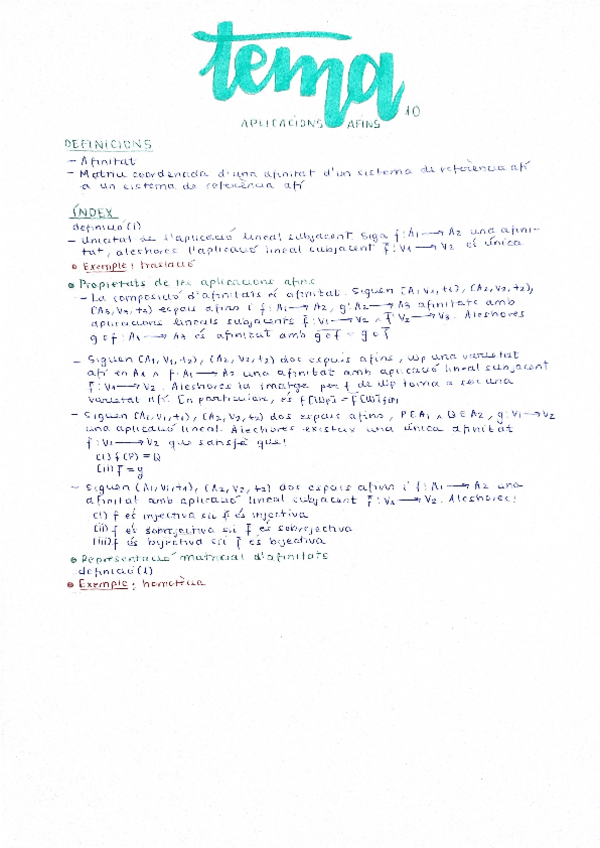 tema 10
APLICACIONS AFINS
DEFINICIONS
- Afinitat
- Matriu coordenada d'una afinitat d'un sistema de referència afí
a un sistema de referència afí
ÍNDEX
definició (1)
- Unicitat de l'aplicació lineal subjacent. Siga f: A1 → A2 una afini-
tat, aleshores l'aplicació lineal subjacent f̄: V1 → V2 és única
• Exemple: traslació
• Propietats de les aplicacions afins
- La composició d'afinitats és afinitat. Siguen (A1, V1, t1), (A2, V2, t2),
(A3, V3, t3) espais afins i f: A1 → A2, g: A2 → A3 afinitats amb
aplicacions lineals subjacents f̄: V1 → V2 V2 → V3. Aleshores
g∘f: A1 → A3 és afinitat amb
- Siguen (A1, V1, t1), (A2, V2, t2) dos espais afins, una varietat
afí en A1 f: A1 → A2 una afinitat amb aplicació lineal subjacent
f̄: V1 → V2. Aleshores la imatge per f de torna a ser una
varietat afí. En particular, és
- Siguen (A1, V1, t1), (A2, V2, t2) dos espais afins, P∈A1 ∧ Q∈A2, g: V1 → V2
una aplicació lineal. Aleshores existeix una única afinitat
f: V1 → V2 que satisfà que:
(i) f(P) = Q
(ii) f̄ = g
- Siguen (A1, V1, t1), (A2, V2, t2) dos espais afins i f: A1 → A2 una
afinitat amb aplicació lineal subjacent f̄: V1 → V2. Aleshores:
(i) f és injectiva sii f̄ és injectiva
(ii) f és sobrejectiva sii f̄ és sobrejectiva
(iii) f és bijectiva sii f̄ és bijectiva
• Representació matricial d'afinitats
definició (1)
• Exemple: homotècia